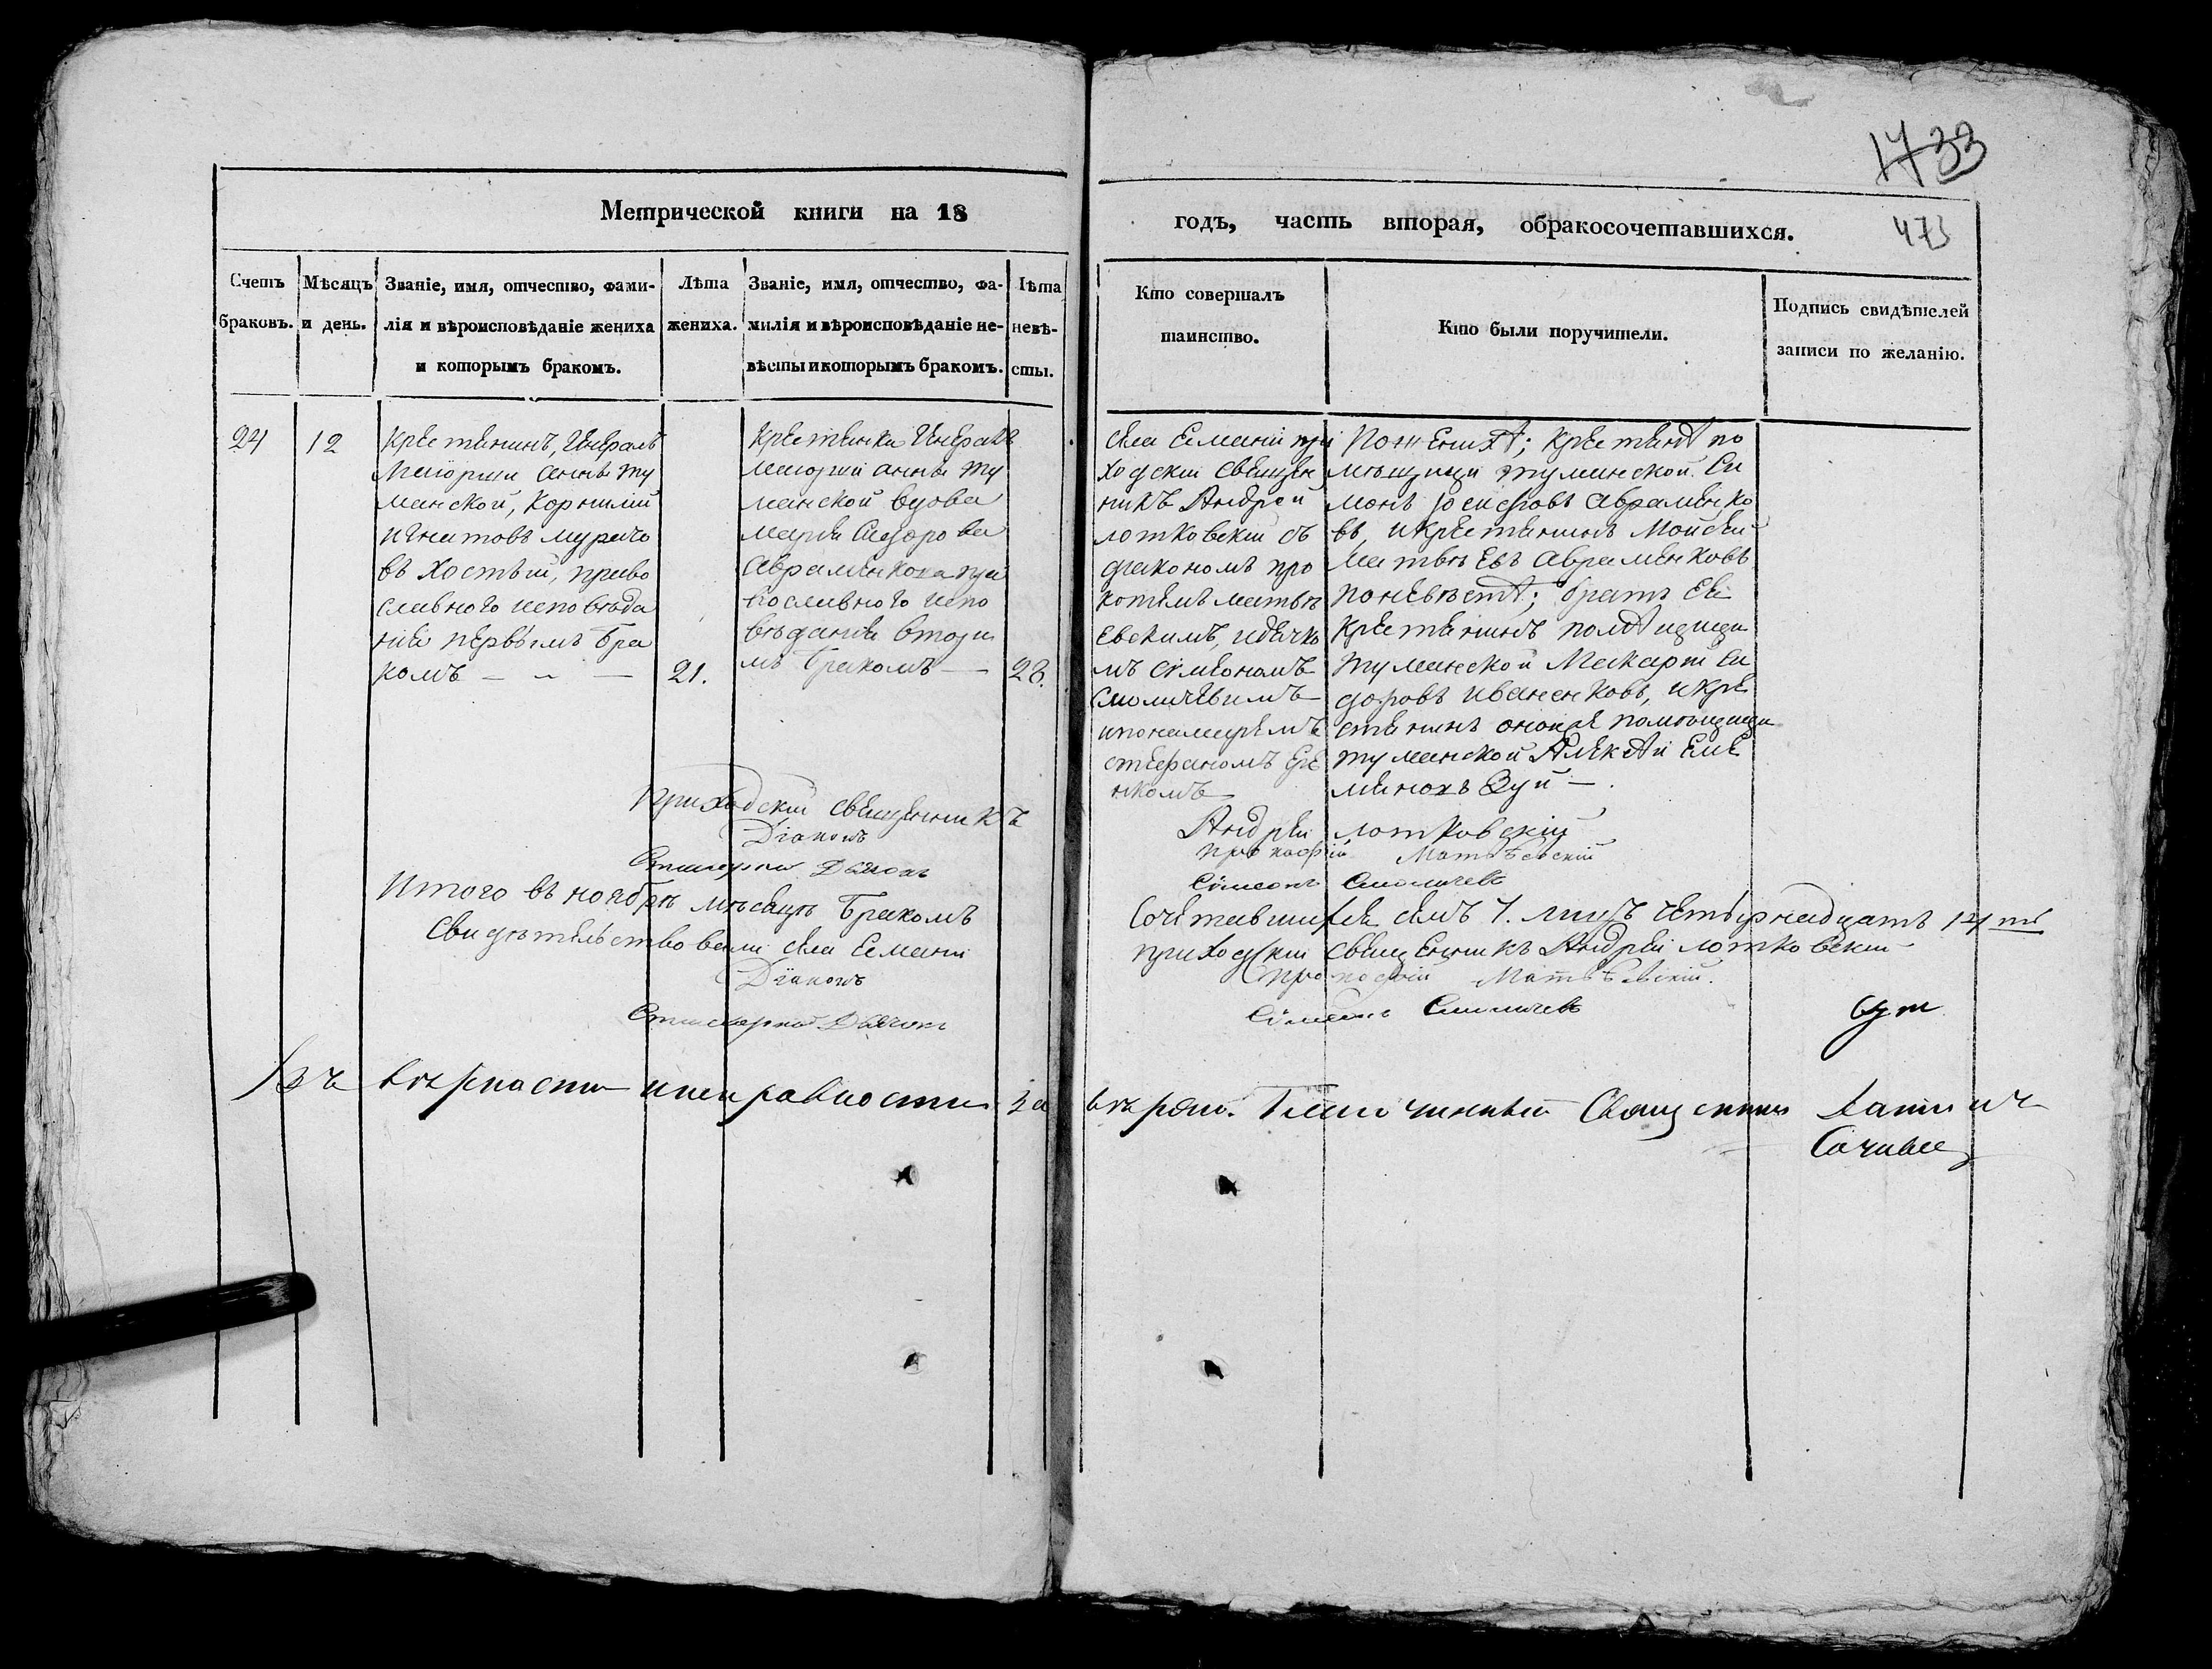 1733
Метрической книги на 18
годъ, часть вторая, обракосочетавшихся.
473
Счетъ браковъ.
Мѣсяцъ и день.
Званіе, имя, отчество, фами-
лія и вѣроисповѣданіе жениха
и которымъ бракомъ.
Лѣта
жениха.
Званіе, имя, отчество, фа-
милія и вѣроисповѣданіе не-
вѣсты и которымъ бракомъ.
Лѣта
невѣ-
сты.
Кто совершалъ
таинство.
Кто были поручители.
Подпись свидѣтелей
записи по желанію.
24
12
крестянинъ, Генералъ
Маіорши анны ту
манской, Корнилій
игнатовъ мурачо
въ Хостѣй, право
славного исповѣда
нія первымъ бра
комъ
21.
крестянка Генералъ
маіорши анны ту
манской вдова
марія Сидорова
Авраменкова пра
вославного испо
вѣданія вторы
мъ бракомъ
28.
села Есмани при
ходскій священ
никъ Андрей
лотковскій съ
діакономъ про
котемъ матвѣ
евскимъ, идячко
мъ симеономъ
Смоличевимъ
ипонамаремъ
стефаномъ
нкомъ
Пожених; крестяне по
мѣщици туманской. Си
монъ Іосифовъ авраменко
въ, икрестянинъ Мойсей
матвѣевъ авраменковъ
поневѣст; братъ ея
крестянинъ помѣщици
туманской Макарій Си
доровъ иваненковъ, икре
стянинъ оной же помѣщици
туманской Алексѣй Еме
Зуй
Приходскій священникъ Андрей лотковскій
Діаконъ прокофій Матвѣевскій
Дьячокъ Симеонъ Смоличевъ
Итого въ ноябрѣ мѣсяцѣ бракомъ Сочетавшихся семъ 7. лицъ четырнадцать 14 ть
Свидѣтельствовали села Есмани приходскій священникъ Андрей лотковскій
Діаконъ прокофій Матвѣевскій.
Дьячокъ Симеонъ Смоличевъ
въ вѣрности и исправности за вѣряю. Благочинный Священникъ